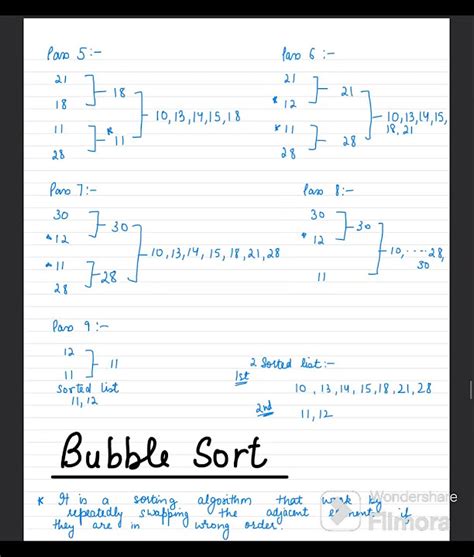 Pass 5 :-
21
18
18
11
* 11
28
10, 13, 14, 15, 18
Pass 6 :-
21
* 12
21
* 11
28
28
10, 13, 14, 15,
18, 21
Pass 7 :-
30
* 12
30
* 11
28
28
10, 13, 14, 15, 18, 21, 28
Pass 8 :-
30
* 12
30
11
10, .... 28,
30
Pass 9 :-
12
11
11
Sorted list
11, 12
2 Sorted list :-
1st
10, 13, 14, 15, 18, 21, 28
2nd
11, 12
Bubble Sort
* It is a sorting algorithm that work by
repeatedly swapping the adjacent element if
they are in wrong order.
Wondershare
Filmora